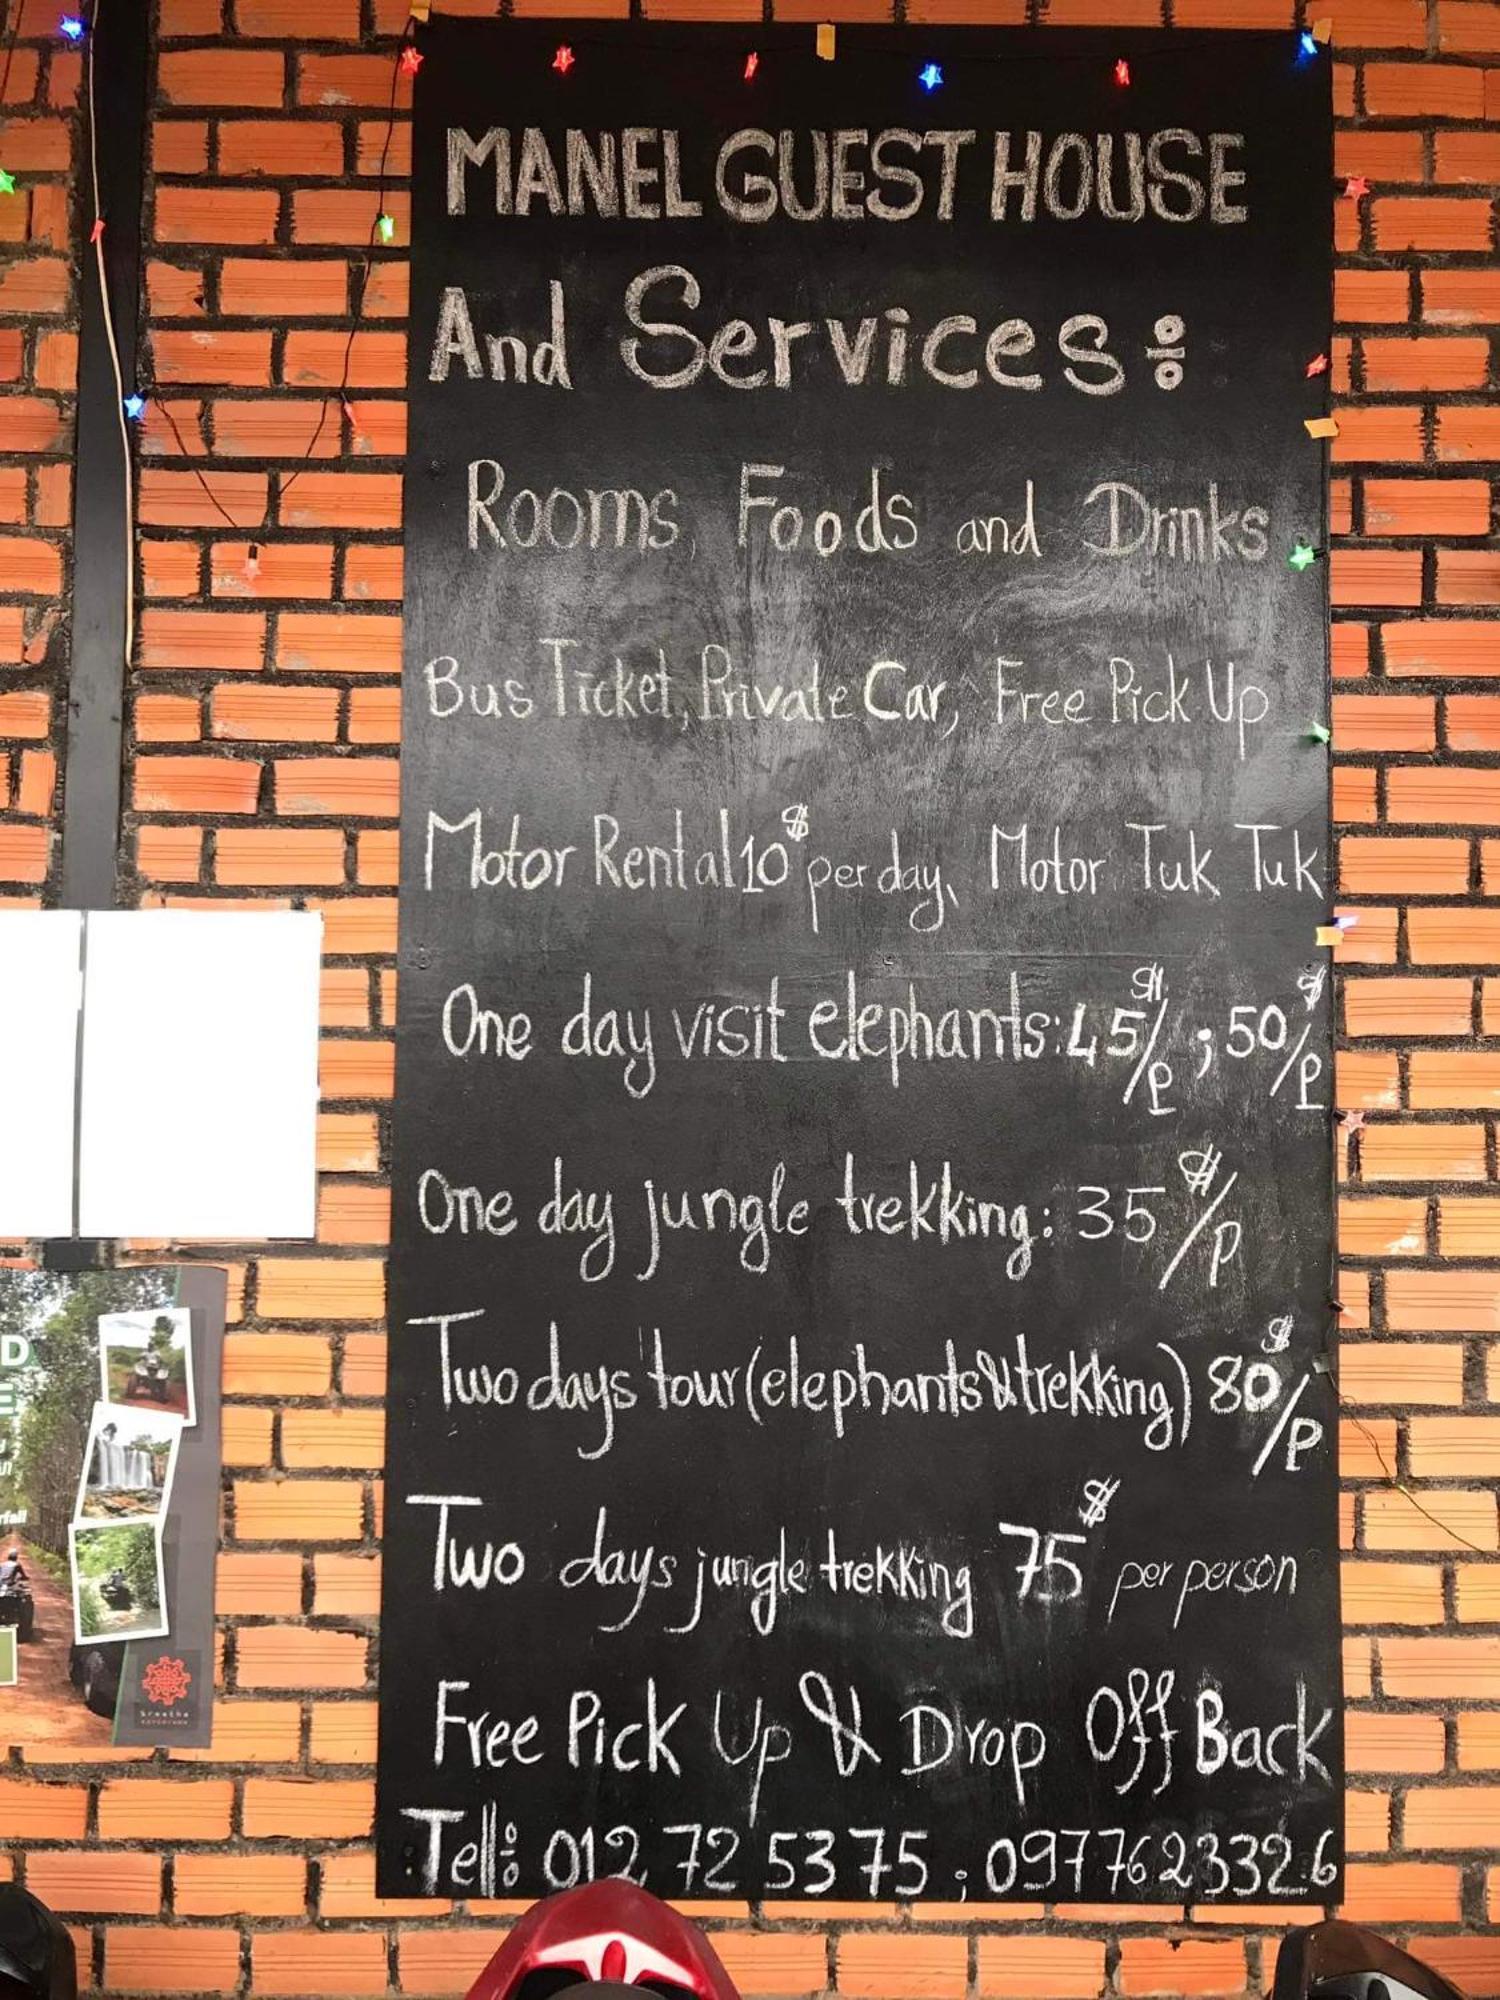 MANEL GUEST HOUSE
And Services:
Rooms, Foods and Drinks
Bus Ticket, Private Car, Free Pick Up
Motor Rental 10$ per day, Motor Tuk Tuk
One day visit elephants: 45$/P ; 50$/P
One day jungle trekking: 35$/P
Two days tour (elephants & trekking) 80$/P
Two days jungle trekking 75$ per person
Free Pick Up & Drop Off Back
Tell: 012 72 53 75 ; 0977623326
D
E
rfall
breathe